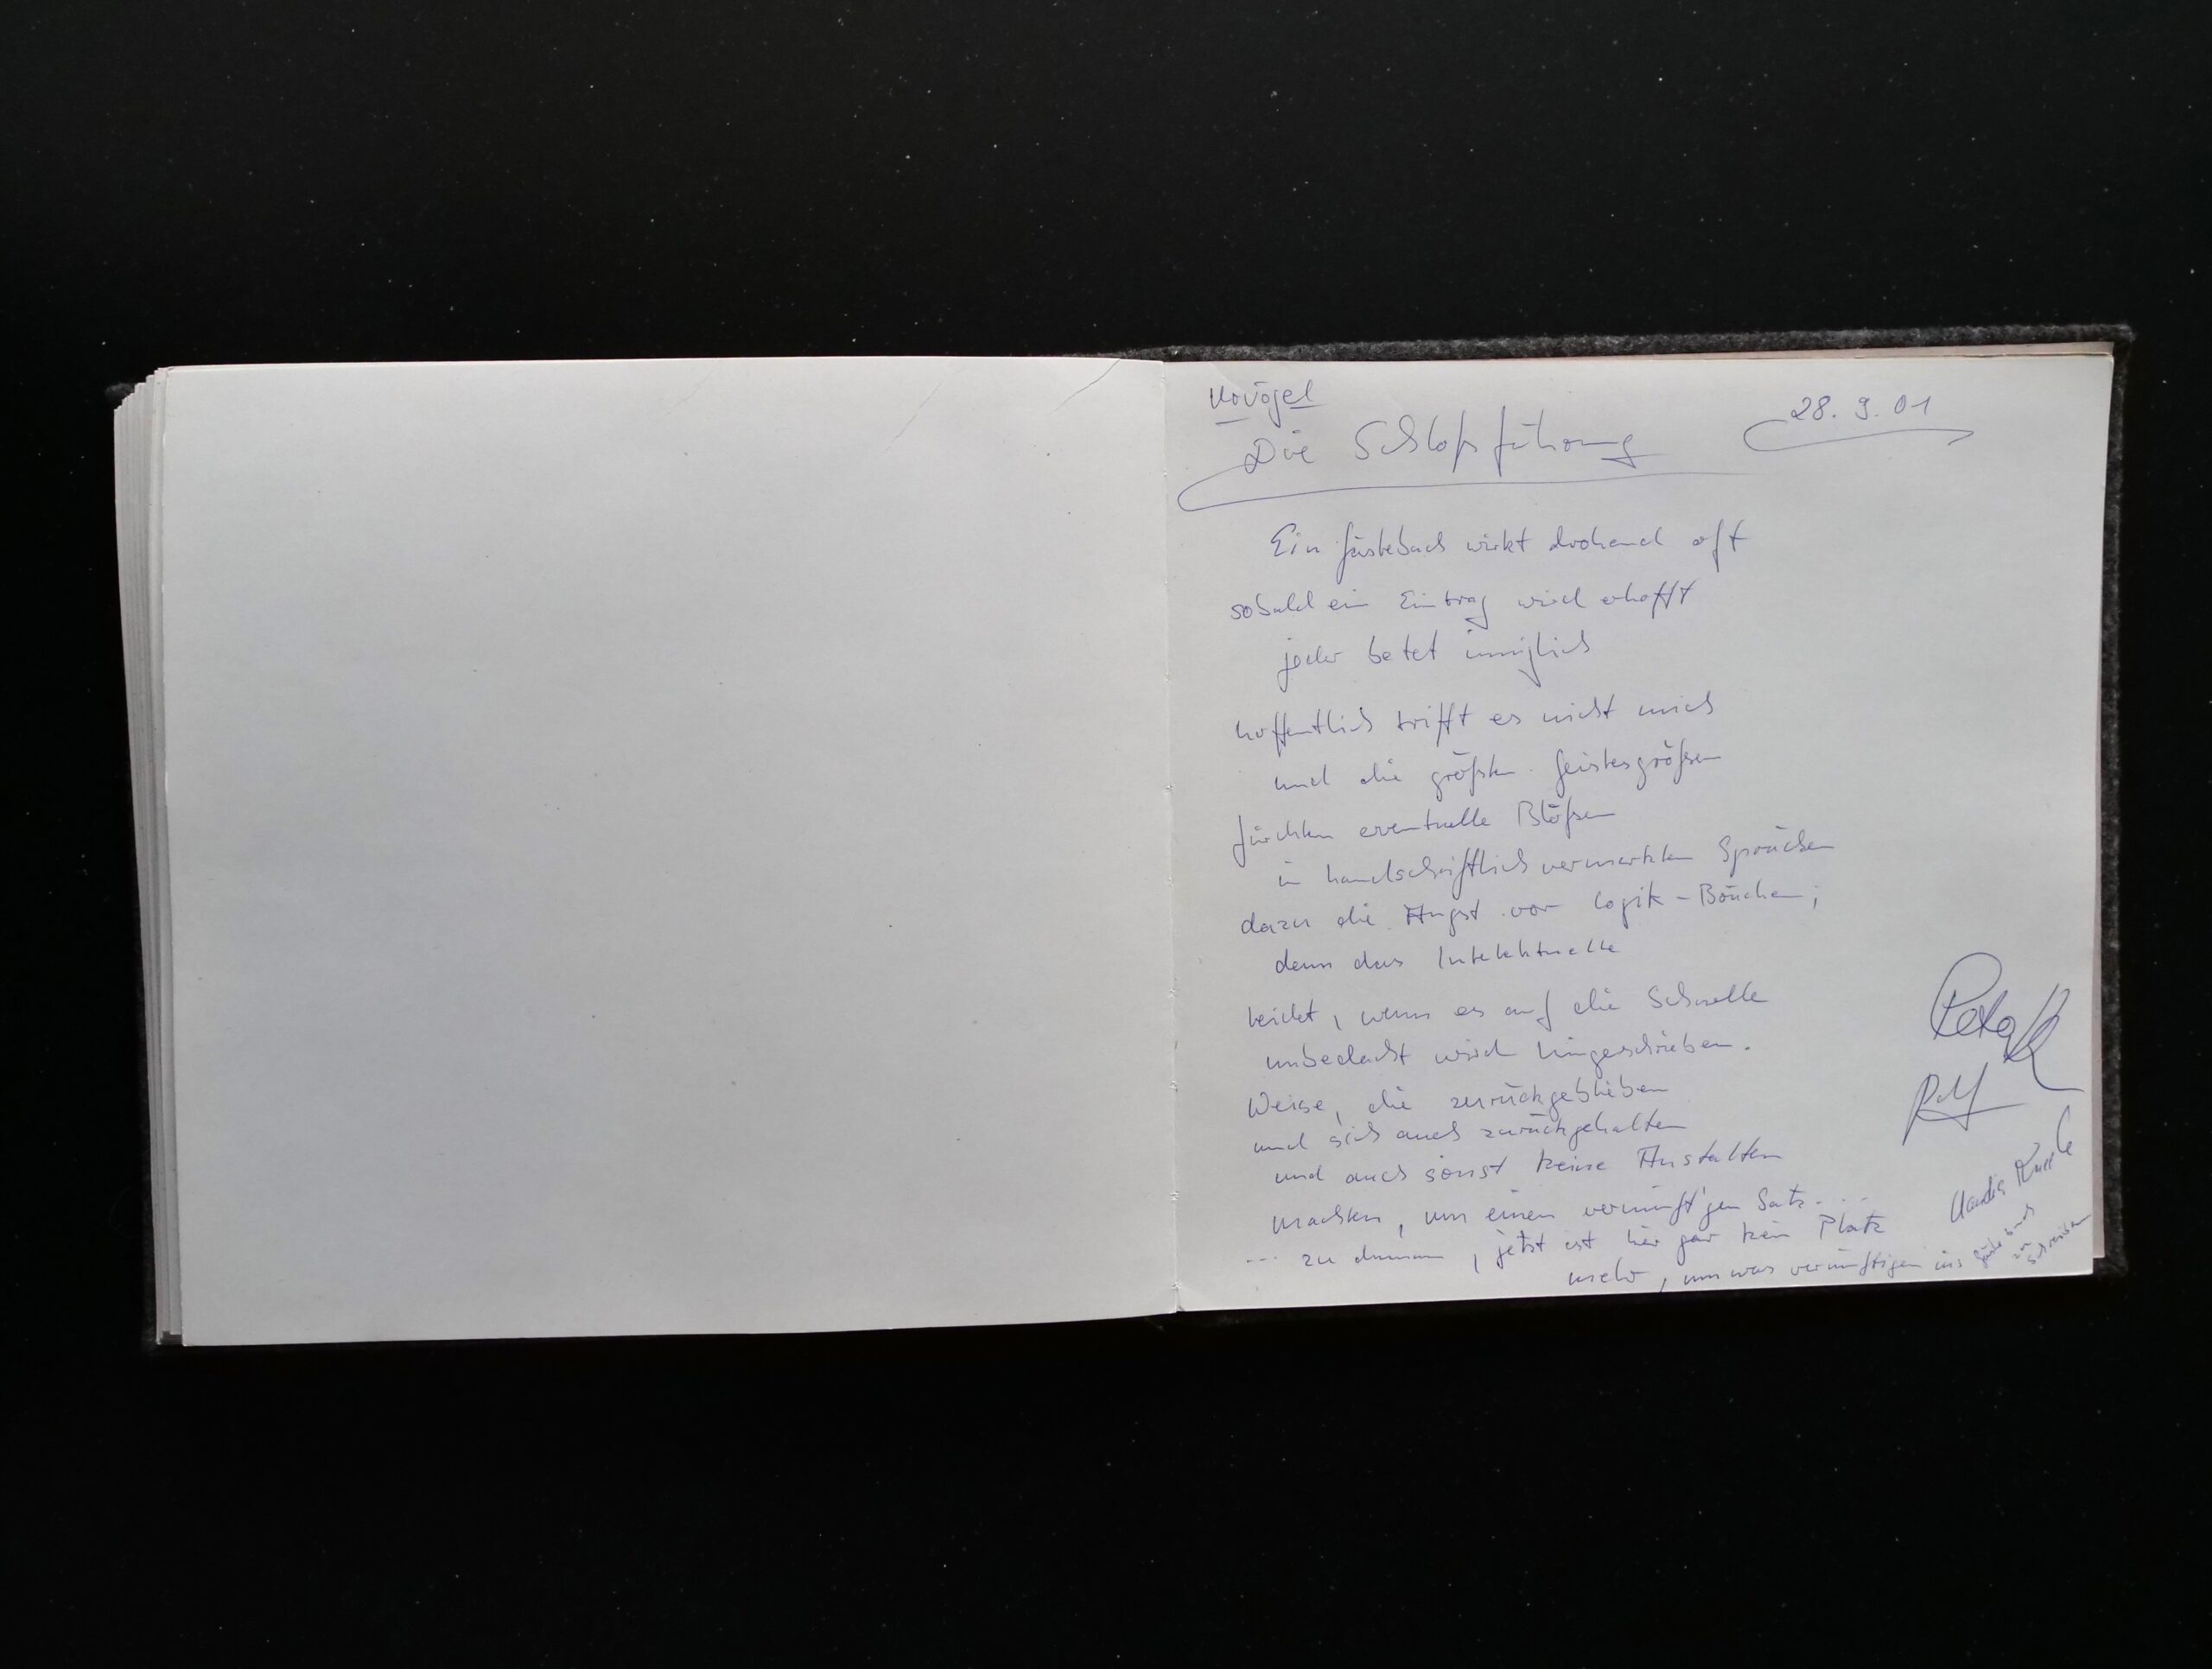 28. 9. 01
Die Schloßführung
Ein Gästebuch wirkt drohend oft
sobald ein Eintrag wird erhofft
jeder betet inniglich
hoffentlich trifft es nicht mich
und die größten Geistesgrößen
fürchten eventuelle Blößen
in handschriftlich vermerkten Sprüchen
dazu die Angst vor Logik-Brüchen;
denn das Intelektuelle
leidet, wenn es auf die Schnelle
unbedacht wird hingeschrieben.
Weise, die zurückgeblieben
und sich auch zurückgehalten
und auch sonst keine Anstalten
machten, um einen vernünft'gen Satz...
... zu , jetzt ist hier gar kein Platz
mehr, um was vernünftigen ins Gästebuch
zu
schreiben
Claudia